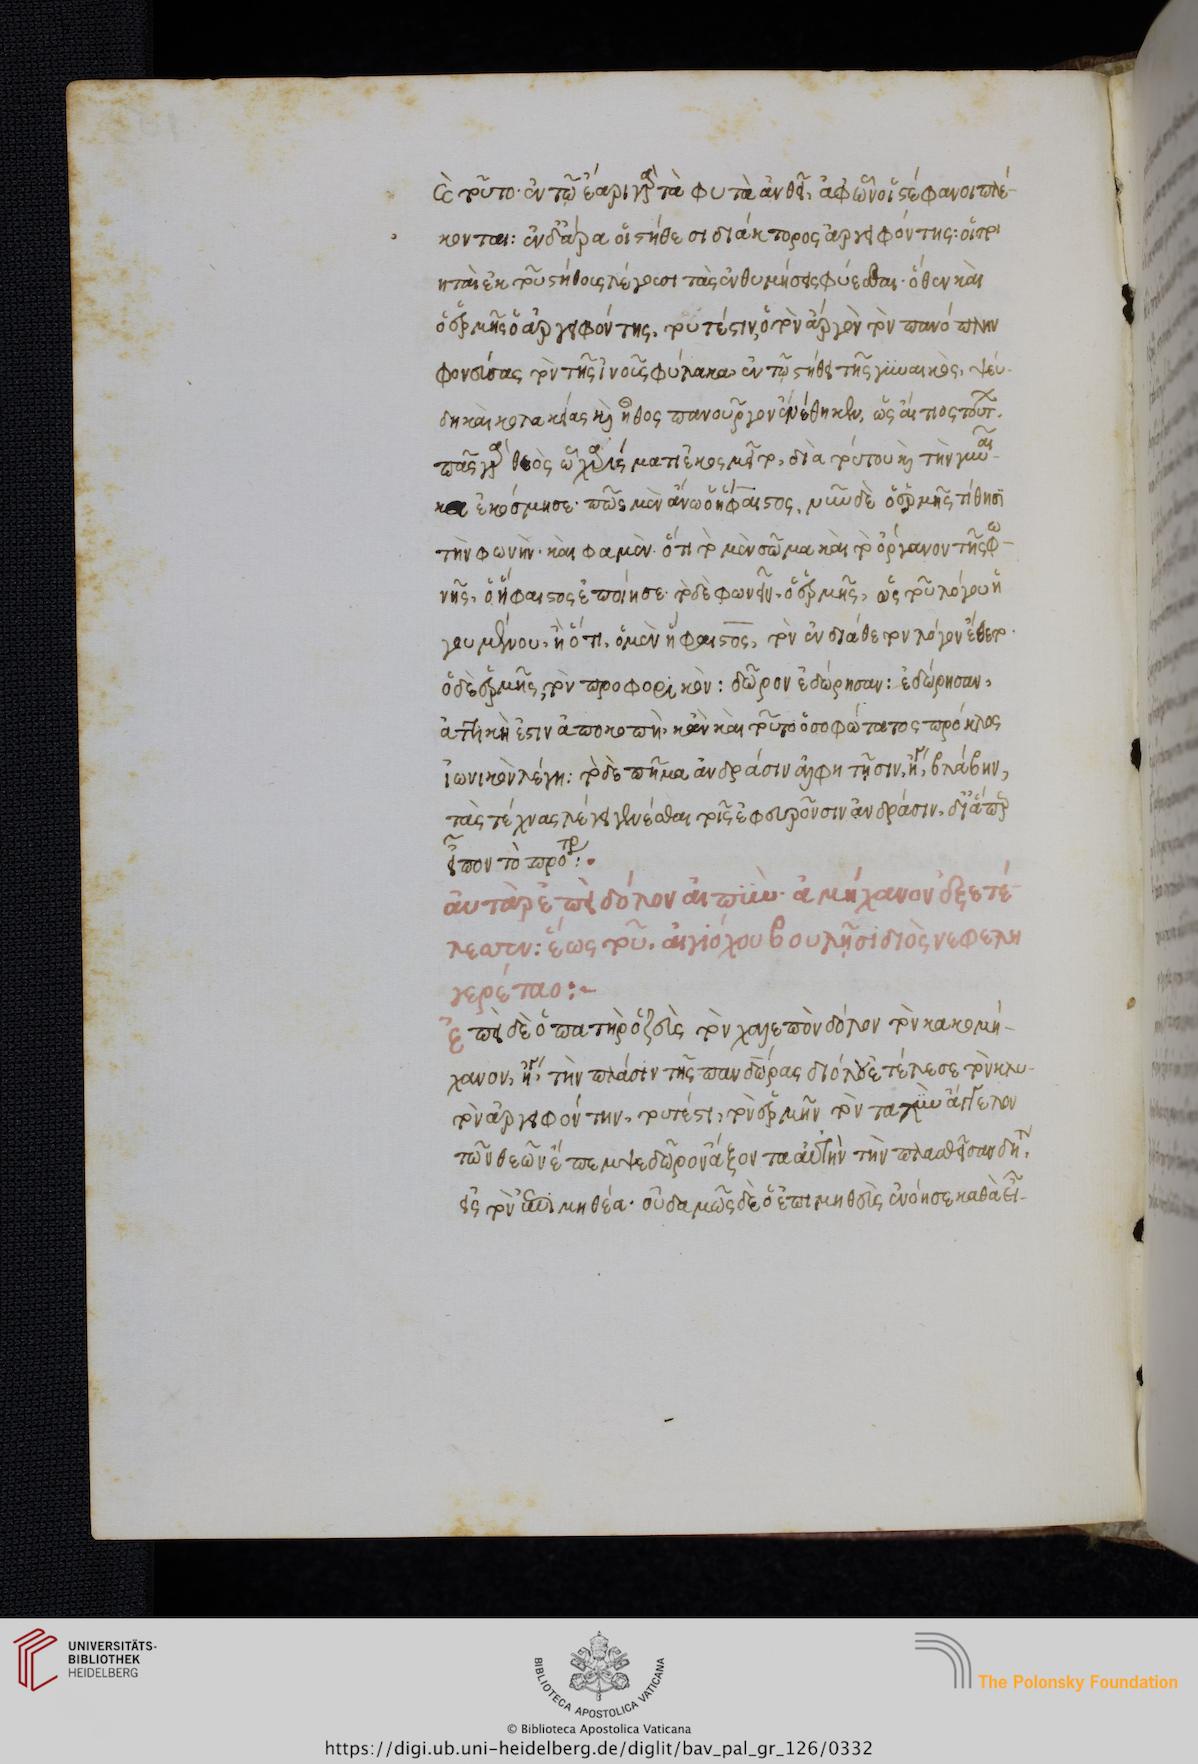 ὡς τοῦτο. ἐν τῷ ἔαρι γὰρ τὰ φυτὰ ἀνθεῖ, ἀφ' ὧν οἱ στέφανοι πλέ-
κονται: ἐν δ' ἄρα οἱ στήθεσι διάκτορος ἀργειφόντης: οἱ ποι
ηταὶ ἐκ τοῦ στήθους λέγουσι τὰς ἐνθυμήσεις φύεσθαι. ὅθεν καὶ
ὁ ἑρμῆς ὁ ἀργειφόντης, τουτέστιν, ὁ τὸν ἀργὸν τὸν πανόπτην
φονεύσας τὸν τῆς ἰνοῦς φύλακα, ἐν τῷ στήθει τῆς γυναικὸς, ψεύ-
δη καὶ κολακείας καὶ ἦθος πανοῦργον ἐνέθηκεν, ὡς αἴτιος τούτων.
πᾶς γὰρ θεὸς ᾧ χαρίσματι ἐκοσμεῖτο, διὰ τούτου καὶ τὴν γυναῖ-
κα ἐκόσμησε. πῶς μὲν ἄνω ὁ ἥφαιστος, νῦν δὲ ὁ ἑρμῆς τίθησι
τὴν φωνήν. καὶ φαμὲν. ὅτι τὸ μὲν σῶμα καὶ τὸ ὄργανον τῆς φω-
νῆς, ὁ ἥφαιστος ἐποίησε. τὸ δὲ φωνεῖν, ὁ ἑρμῆς, ὡς τοῦ λόγου ἡ
γουμένου, ἢ ὅτι, ὁ μὲν ἥφαιστος, τὸν ἐνδιάθετον λόγον ἔθετο.
ὁ δὲ ἑρμῆς, τὸν προφορικόν: δῶρον ἐδώρησαν: ἐδώρησαν,
ἀττική ἐστιν ἀποκοπὴ, κἂν καὶ τοῦτο ὁ σοφώτατος πρόκλος
ἰωνικὸν λέγη: τὸ δὲ πῆμα ἀνδράσιν ἀλφηστῆσιν, ἤγουν, βλάβην,
τὰς τέχνας λέγει γενέσθαι τοῖς ἐφευροῦσιν ἀνδράσιν, δι' ἅπερ
εἶπον τὸ πρότερον:.
αὐτὰρ ἐπεὶ δόλον αἰπὺν. ἀμήχανον ἐξετέ-
λεσσεν: ἕως τοῦ. αἰγιόχου βουλῇσι διὸς νεφελη
γερέταο:~
ἐπεὶ δὲ ὁ πατὴρ ὁ ζεὺς τὸν χαλεπὸν δόλον τὸν κακομή-
χανον, ἤγουν, τὴν πλάσιν τῆς πανδώρας διόλου ἐτέλεσε τὸν κλυ-
τὸν ἀργειφόντην, τουτέστι, τὸν ἑρμῆν τὸν ταχὺν ἄγγελον
τῶν θεῶν ἔπεμψε δῶρον ἄξοντα αὐτὴν τὴν πλασθεῖσαν δηλονότι,
εἰς τὸν ἐπιμηθέα. οὐδαμῶς δὲ ὁ ἐπιμηθεὺς ἐνόησε καθὰ εἶ-
UNIVERSITÄTS-
BIBLIOTHEK
HEIDELBERG
BIBLIOTECA APOSTOLICA VATICANA
The Polonsky Foundation
© Biblioteca Apostolica Vaticana
https://digi.ub.uni-heidelberg.de/diglit/bav_pal_gr_126/0332